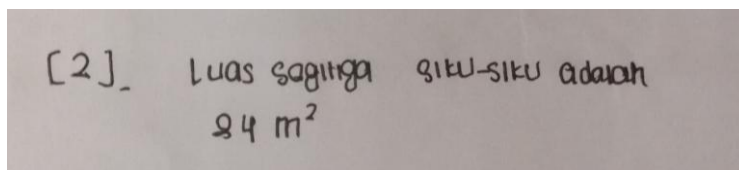 [2]. Luas sagitiga siku-siku adalah
84 m²